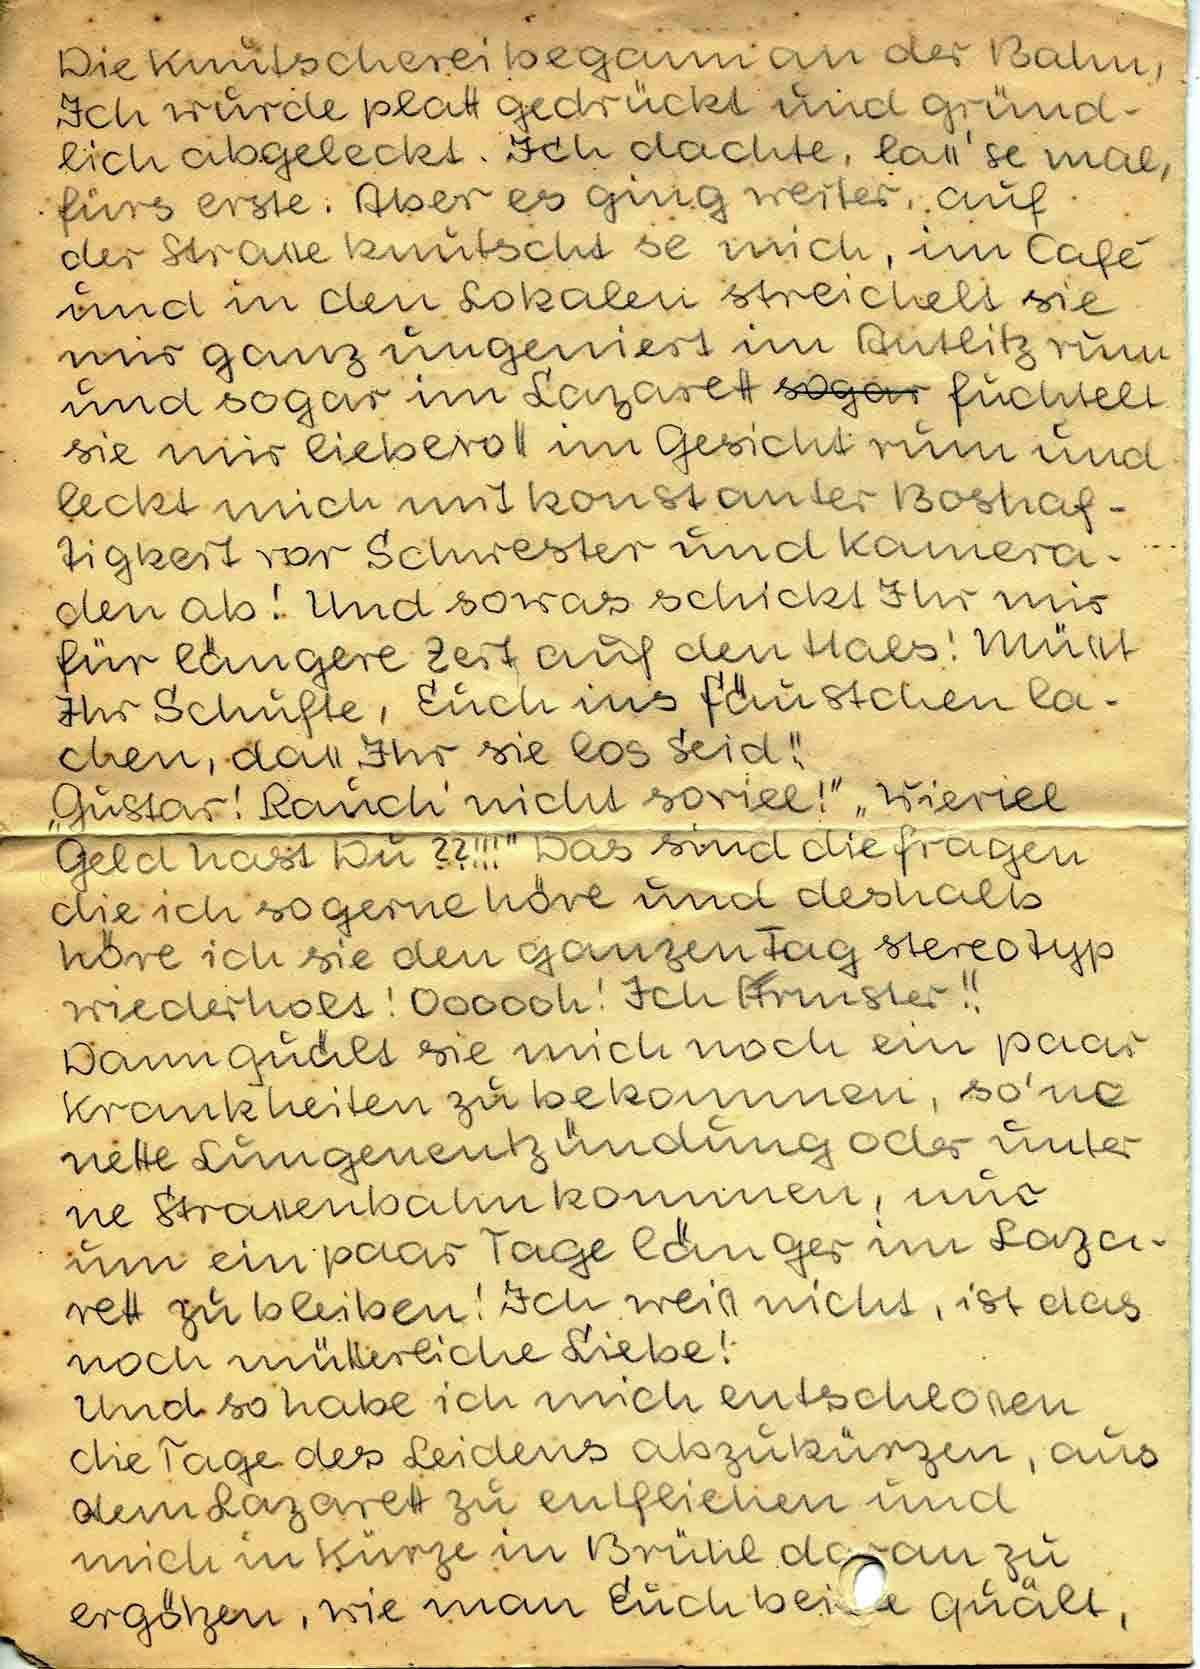 Die Knutscherei begann an der Bahn,
Ich wurde platt gedrückt und gründ-
lich abgeleckt. Ich dachte, laß 'se mal,
fürs erste. Aber es ging weiter, auf
der Straße knutscht se mich, im Café
und in den Lokalen streichelt sie
mir ganz ungeniert im Antlitz rum
und sogar im Lazarett sogar fuchtelt
sie mir liebevoll im Gesicht rum und
leckt mich mit konstanter Boshaf-
tigkeit vor Schwester und Kamera-
den ab! Und sowas schickt Ihr mir
für längere Zeit auf den Hals! Müßt
Ihr Schufte, Euch ins Fäustchen la-
chen, daß Ihr sie los seid!!
„Gustav! Rauch' nicht soviel!" „Wieviel
Geld hast Du ??!!!" Das sind die Fragen
die ich so gerne höre und deshalb
höre ich sie den ganzen Tag stereotyp
wiederholt! Oooooh! Ich Ärmster!!
Dann quält sie mich noch ein paar
Krankheiten zu bekommen, so'ne
nette Lungenentzündung oder unter
ne Straßenbahn kommen, nur
um ein paar Tage länger im Laza-
rett zu bleiben! Ich weiß nicht, ist das
noch mütterliche Liebe!
Und so habe ich mich entschloßen
die Tage des Leidens abzukürzen, aus
dem Lazarett zu entfliehen und
mich in Kürze in Brühl daran zu
ergötzen, wie man Euch beide quält,